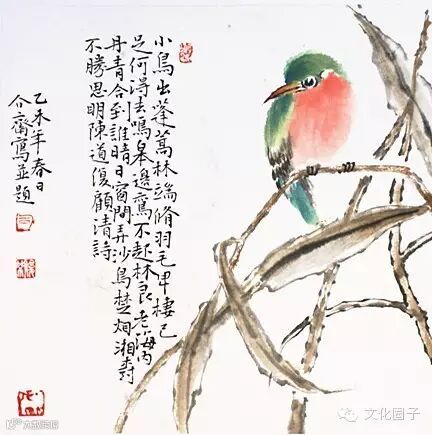 小鳥出蓬蒿林端脩羽毛卑棲已
足何得去鳴皋邊鸞不起林良老海内
丹青合到誰晴日窗間弄沙鳥楚烟湘
不勝思明陳道復顧清詩
乙未年春日
介齋寫並題
文化圈子